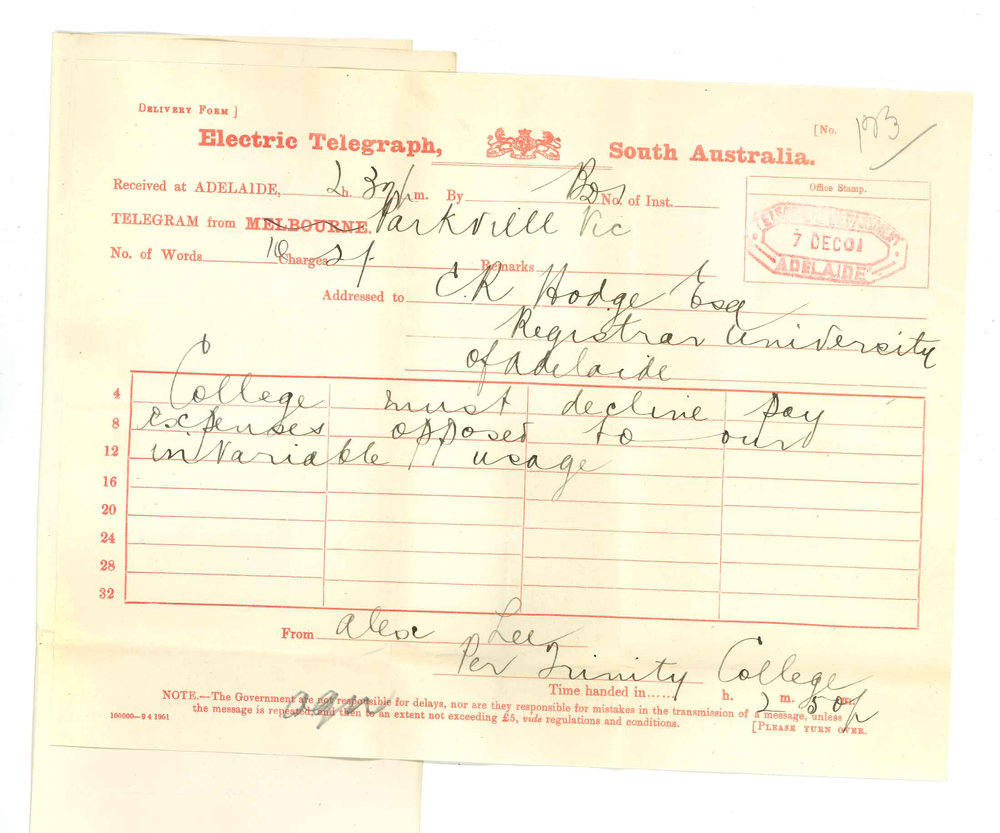 DELIVERY FORM ]
[No. 123
Electric Telegraph, South Australia.
Received at ADELAIDE, 2 h. 32 p m. By No. of Inst.
Office Stamp.
TELEGRAM from MELBOURNE. Parkville Vic
ELECTRIC DEPARTMENT
7 DEC 01
ADELAIDE
No. of Words 10 Charges 2/- Remarks
Addressed to C.R Hodge Esq
Registrar University
of Adelaide
4 College must decline pay
8 expenses opposed to our
12 invariable usage
16
20
24
28
32
From Alex Lee
Per Trinity College
Time handed in...... h. 2 m. 50 p m.
NOTE.—The Government are not responsible for delays, nor are they responsible for mistakes in the transmission of a message, unless
the message is repeated, and then to an extent not exceeding £5, vide regulations and conditions.
100000—9 4 1961
[PLEASE TURN OVER.